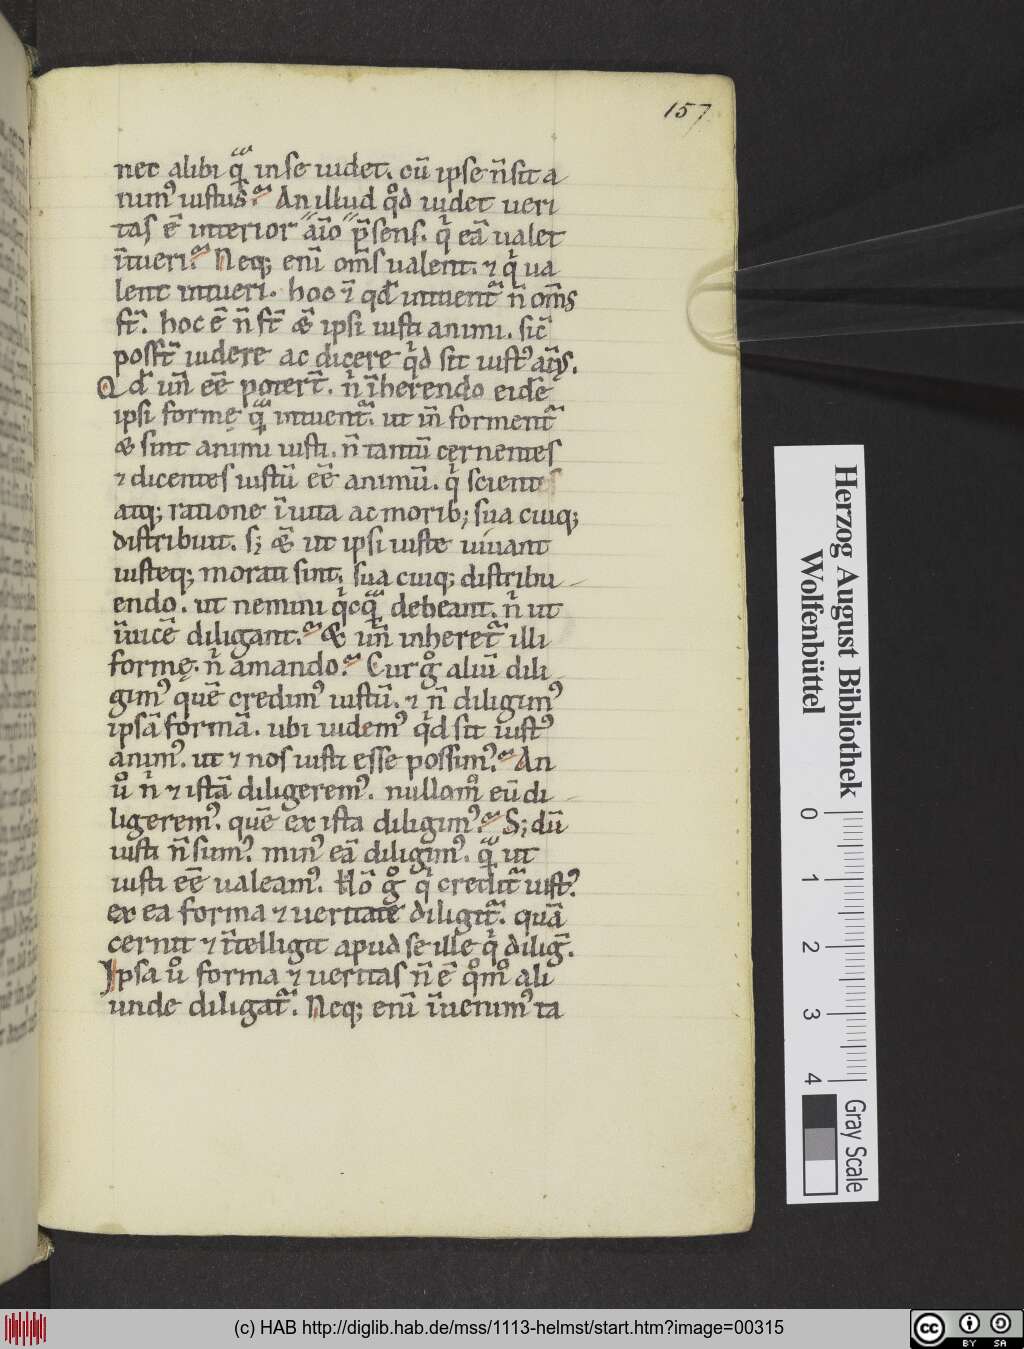 157
nec alibi q̄ͣ in se uidet. cū ipse n̄ sit a
nimꝰ iustus? An illud qͦd uidet ueri
tas ē interior aīo p̄sens. qͥ eā ualet
ītueri? Neq; enī om̄s ualent. ⁊ qͥ ua
lent intueri. hoc ī qđ intuentᷣ n̄ om̄s
st̄. hoc ē n̄ st̄ & ipsi iusti animi. sic̄
poss̄t uidere ac dicere qͥd sit iustꝰ aīꝰ.
Qđ un̄ eē poter̄t. nͥ īherendo eidē
ipsi formę q̄ͣ intuentᷣ. ut in̄ formentᷣ
& sint animi iusti. n̄ tantū cernentes
⁊ dicentes iustū eē animū. qͥ scient
atq; ratione ī uita ac morib; sua cuiq;
distribuit. s; & ut ipsi iuste uiuant
iusteq; morati sint. sua cuiq; distribu
endo. ut nemini qͥcq̄ͣ debeant. nͥ ut
īuicē diligant? & un̄ inheretᷣ illi
formę. nͥ amando? Cur gͦ aliū dili
gimꝰ quē credimꝰ iustū. ⁊ n̄ diligimꝰ
ipsā formā. ubi uidemꝰ qͥd sit iustꝰ
animꝰ. ut ⁊ nos iusti esse possimꝰ? An
uͦ nͥ ⁊ istā diligeremꝰ. nullomͦ eū di
ligeremꝰ. quē ex ista diligimꝰ? S; dū
iusti n̄ sumꝰ. minꝰ eā diligimꝰ. q̄ͣ ut
iusti eē ualeamꝰ. Hō gͦ qͥ creditᷣ iustꝰ.
ex ea forma ⁊ ueritate diligitᷣ. quā
cernit ⁊ ītelligit apud se ille qͥ diligt̄.
Ipsa uͦ forma ⁊ ueritas n̄ ē qͦmͦ ali
unde diligatᷣ. Neq; enī īuenimꝰ ta
Herzog August Bibliothek
Wolfenbüttel
0 1 2 3 4
Gray Scale
(c) HAB http://diglib.hab.de/mss/1113-helmst/start.htm?image=00315
cc BY SA